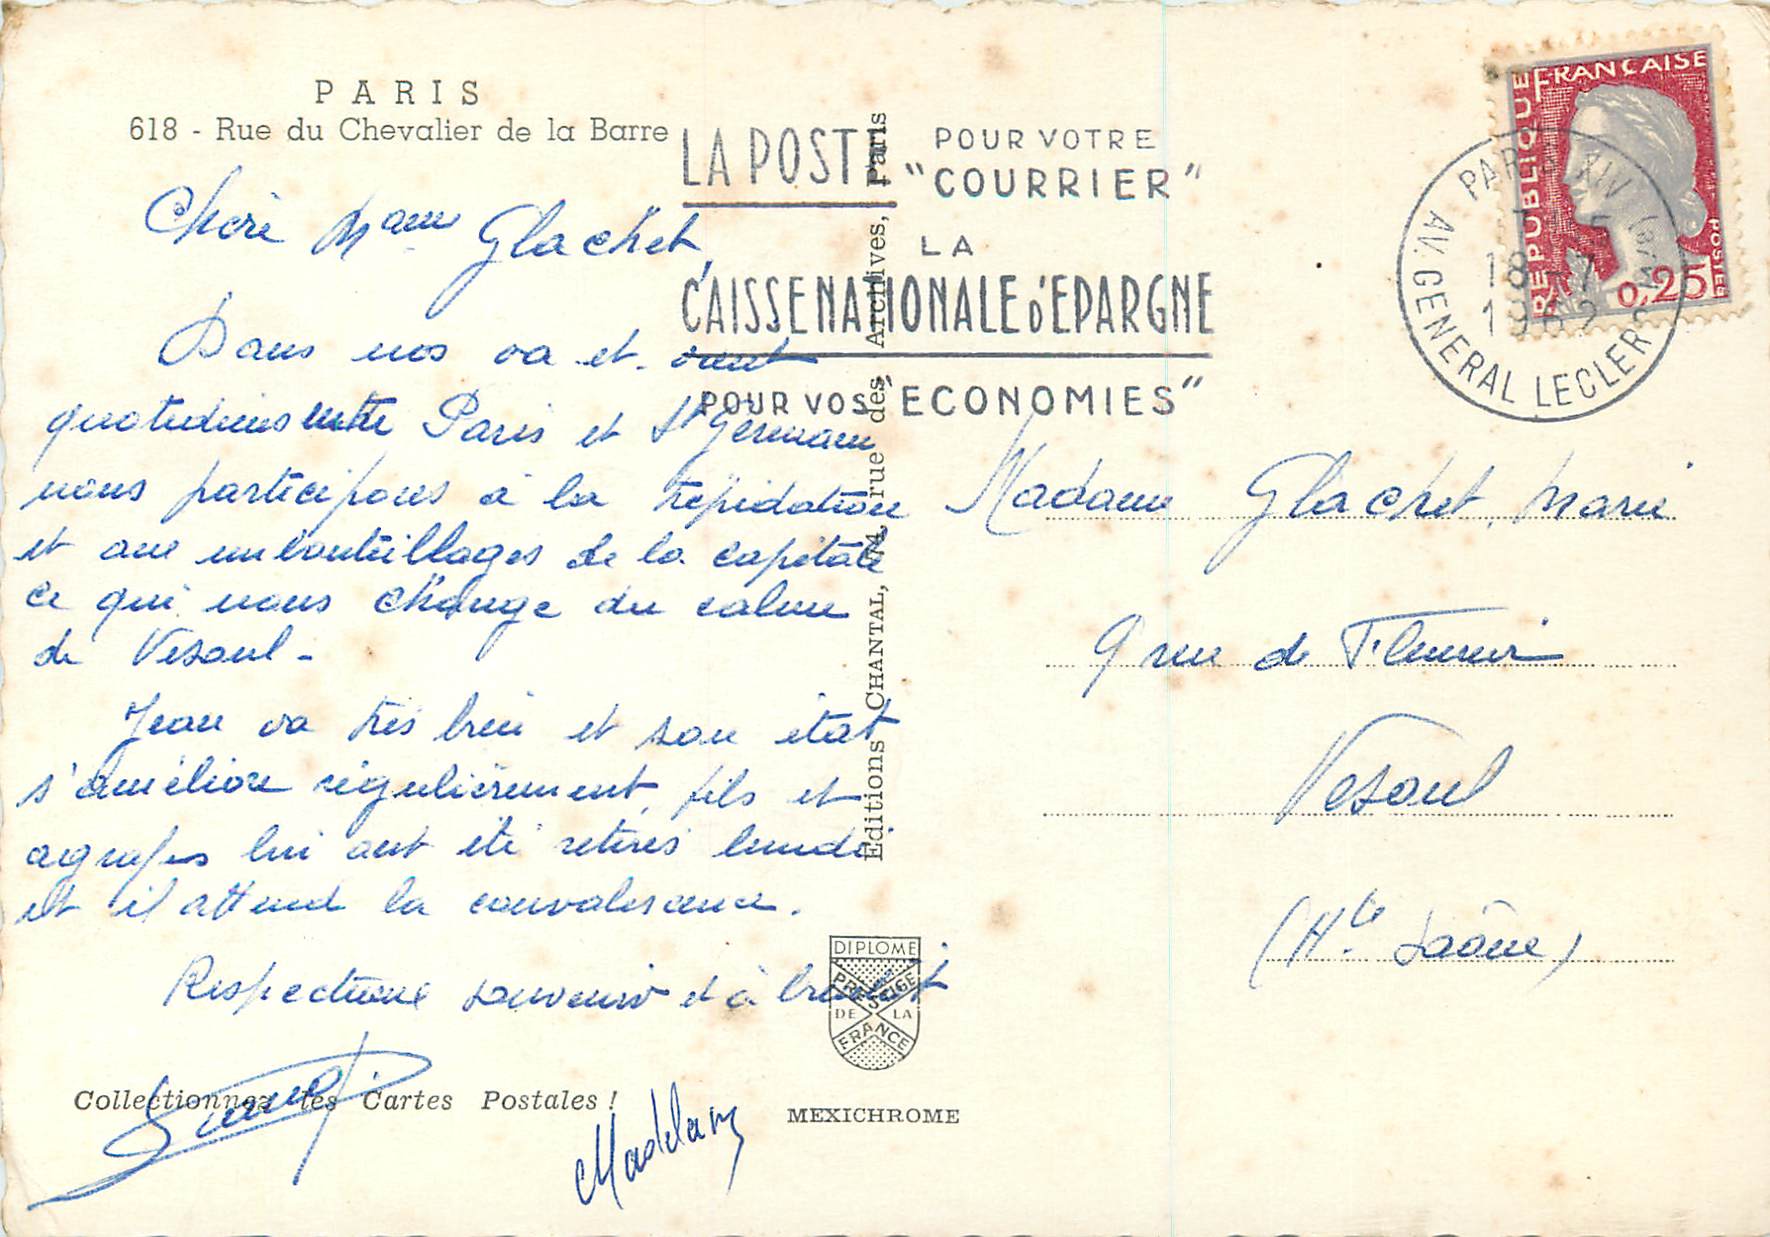 PARIS
618 - Rue du Chevalier de la Barre
Chère Mme Glachet,
Dans nos va et vient
quotidiens entre Paris et St Germain
nous participons à la trépidation
et aux embouteillages de la capitale
ce qui nous change du calme
de Vesoul -
Jean va très bien et son état
s'améliore régulièrement, fils et
agrafes lui ont été retirés lundi
et il attend la convalescence.
Respectueux souvenir et à bientôt
Collectionnez les Cartes Postales !
Editions CHANTAL, 74, rue des Archives, Paris
DIPLOME
PRESTIGE
DE LA
FRANCE
MEXICHROME
LA POSTE POUR VOTRE
"COURRIER"
LA
CAISSE NATIONALE D'EPARGNE
POUR VOS "ECONOMIES"
REPUBLIQUE FRANCAISE
POSTES
0,25
PARIS XIV
18-7
1962
AV. GENERAL LECLERC
Madame Glachet Marie
9 rue de
Vesoul
(Hte Saône)